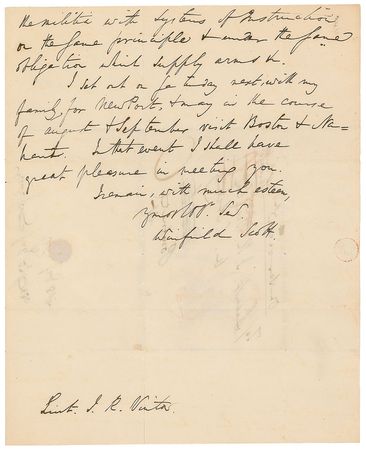 the militia with systems of instruction
on the same principle & under the same
obligation which supply arms &c.
I set out on tuesday next, with my
family, for New Port, & may in the course
of august & September visit Boston & Na-
hant. In that event I shall have
great pleasure in meeting you.
I remain, with much esteem,
Yr mo obt. Sert.
Winfield Scott.
Lieut. J. R. Vinton